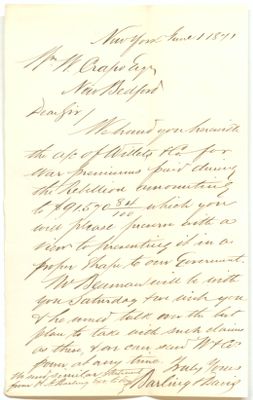 New York June 1 1871
Wm W. Crapo Esq
New Bedford
Dear Sir
We hand you herewith
the a/c of Willets & Co for
War premiums paid during
the Rebellion amounting
to $91570 84/100 which you
will please peruse with a
view to presenting it in a
proper shape to our Government.
Mr Beaman will be with
you Saturday & we wish you
& he would talk over the best
plan to take with such claims
as these, & we can send W & Co
power at any time.
Truly Yours